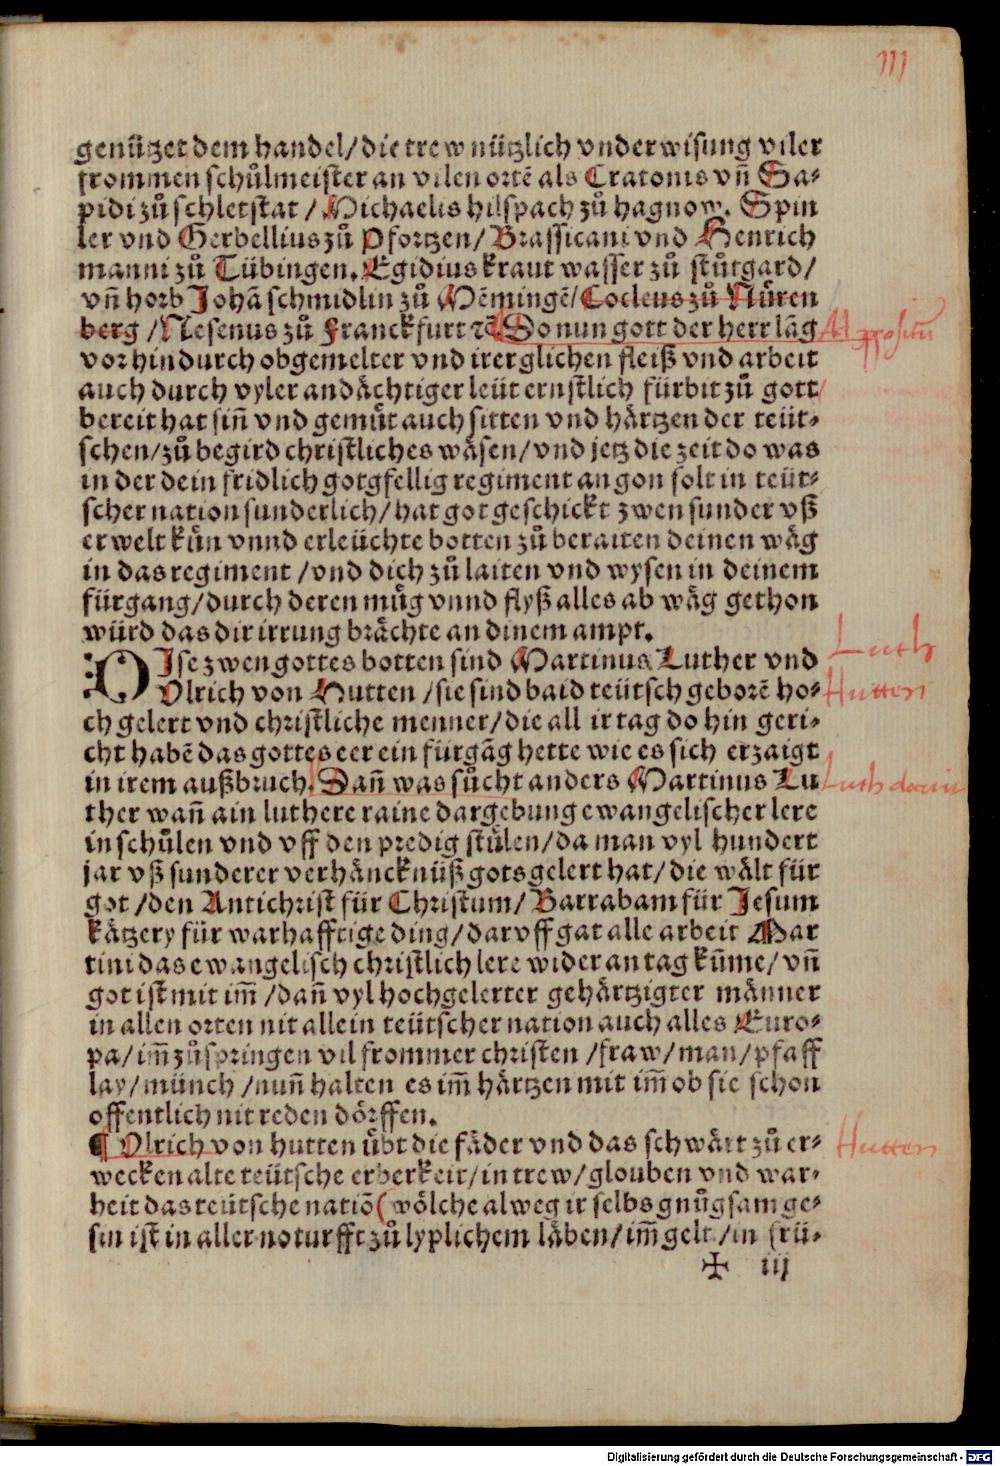 III
genützet dem handel/die trew nützlich vnderwisung viler
frommen schůlmeister an vilen ortē als Cratonis vn̄ Sa-
pidi zů schletstat /Michaelis hilspach zů hagnow. Spin
ler vnd Gerbellius zů Pfortzen/ Brassicani vnd Henrich
manni zů Tübingen. Egidius kraut wasser zů stůtgard/
vn̄ horb Johā schmidlin zů Mēmingē/Cocleus zů Nůren
berg /Nesenus zů Franckfurt ꝛc̄ So nun gott der herr lāg
vor hindurch obgemelter vnd irerglichen fleiß vnd arbeit
auch durch vyler andächtiger leüt ernstlich fürbit zů gott
bereit hat sin̄ vnd gemůt auch sitten vnd härtzen der teüt-
schen/zů begird christliches wäsen/vnd jetz die zeit do was
in der dein fridlich gotgfellig regiment angon solt in teüt-
scher nation sunderlich/hat got geschickt zwen sunder vß
erwelt kün vnnd erleüchte botten zů beraiten deinen wäg
in das regiment /vnd dich zů laiten vnd wysen in deinem
fürgang/durch deren müg vnnd flyß alles ab wäg gethon
würd das dir irrung brächte an dinem ampt.
DIse zwen gottes botten sind Martinus Luther vnd
Vlrich von Hutten /sie sind baid teütsch geborē ho-
ch gelert vnd christliche menner/die all ir tag do hin geri-
cht habē das gottes eer ein fürgāg hette wie es sich erzaigt
in irem außbruch. Dan̄ was sůcht anders Martinus Lu
ther wan̄ ain luthere raine dargebung ewangelischer lere
in schůlen vnd vff den predig stülen/da man vyl hundert
jar vß sunderer verhäncknüß gots gelert hat/die wält für
got /den Antichrist für Christum/ Barrabam für Jesum
kätzery für warhafftige ding/dar vff gat alle arbeit Mar
tini das ewangelisch christlich lere wider an tag kūme/vn̄
got ist mit im̄ /dan̄ vyl hochgelerter gehärtzigter männer
in allen orten nit allein teütscher nation auch alles Euro-
pa/im̄ zůspringen vil frommer christen /fraw/man/pfaff
lay/münch /nun̄ halten es im̄ härtzen mit im̄ ob sie schon
offentlich nit reden dörffen.
¶ Vlrich von hutten übt die fäder vnd das schwärt zů er-
wecken alte teütsche erberkeit/in trew/glouben vnd war-
heit das teütsche natiō (wölche alweg ir selbs gnůgsam ge-
sin ist in aller noturfft zů lyplichem läben/im̄ gelt /in frü-
✠ iij
Luth
Hutten
Hutten
Digitalisierung gefördert durch die Deutsche Forschungsgemeinschaft - DFG